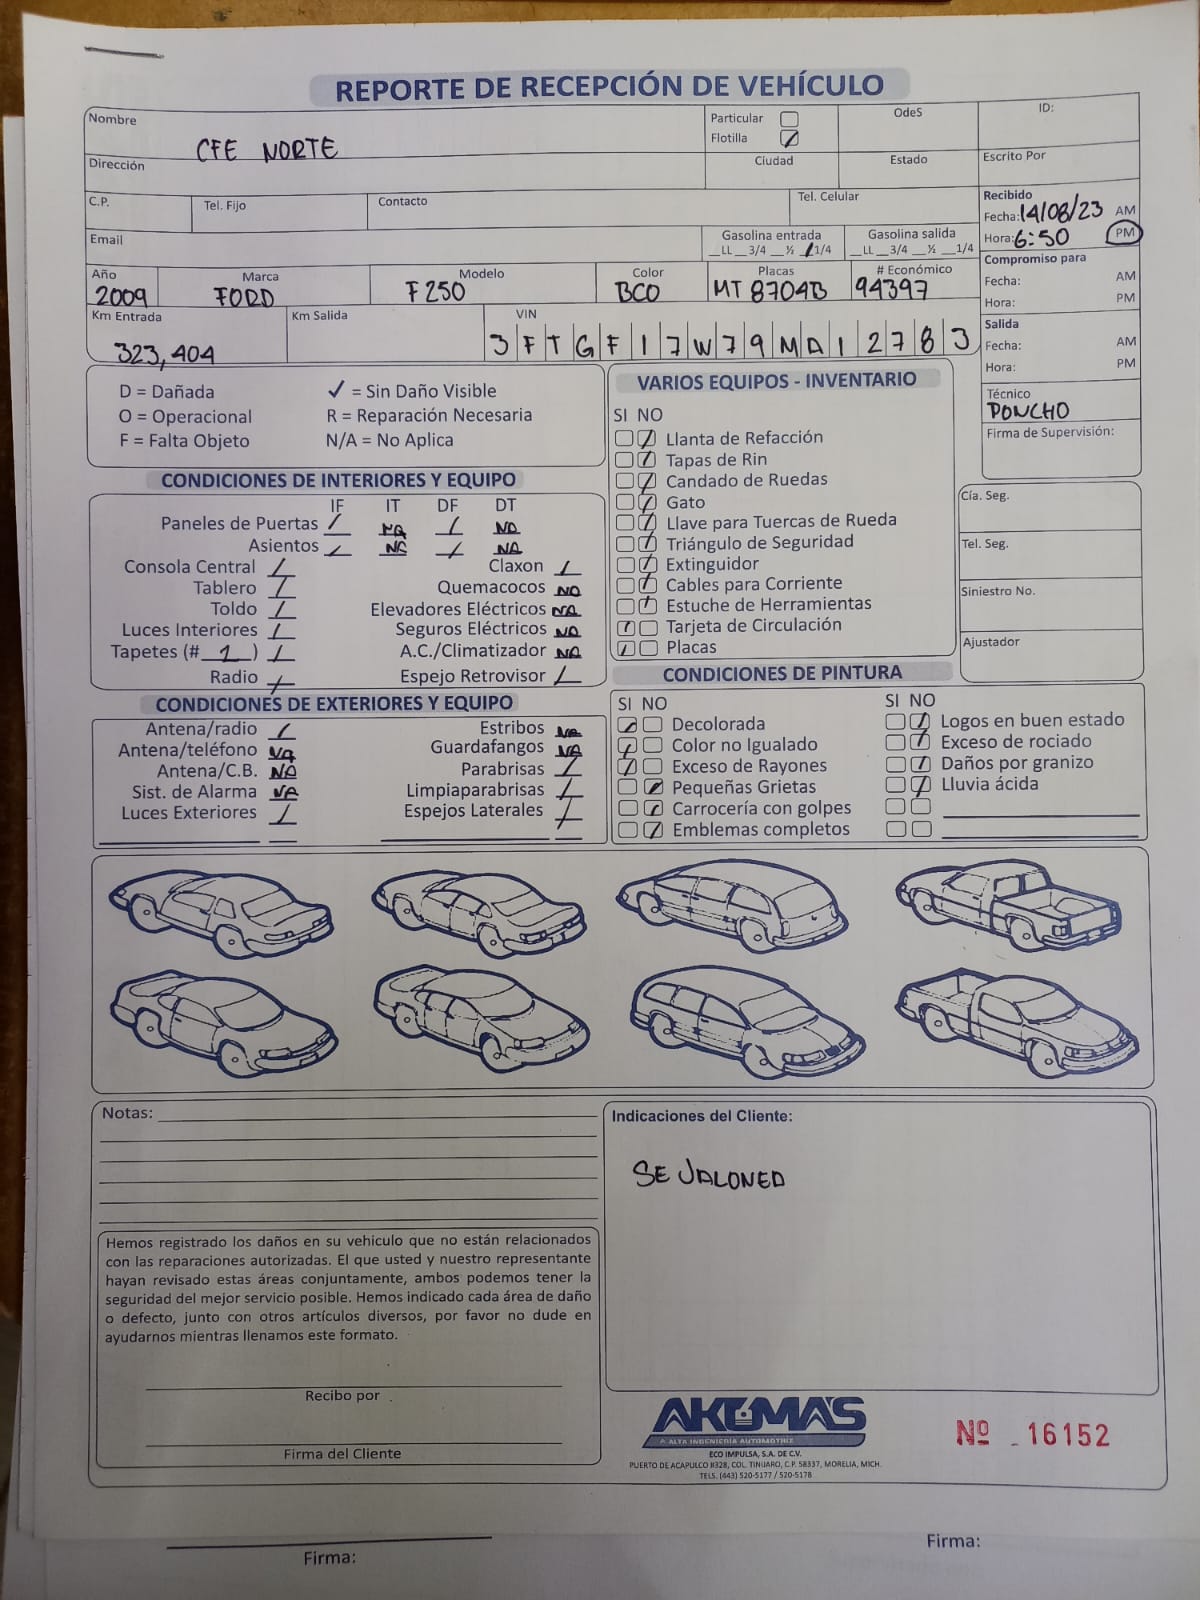 REPORTE DE RECEPCIÓN DE VEHÍCULO
Nombre
CFE NORTE
Particular
Flotilla
OdeS
ID:
Dirección
Ciudad
Estado
Escrito Por
C.P.
Tel. Fijo
Contacto
Tel. Celular
Recibido
Fecha: 14/08/23 AM
Hora: 6:50 PM
Email
Gasolina entrada
__LL __3/4 __½ __1/4
Gasolina salida
__LL __3/4 __½ __1/4
Compromiso para
Fecha: AM
Hora: PM
Año
2009
Marca
FORD
Modelo
F250
Color
BCO
Placas
MT 8704B
# Económico
94397
Km Entrada
323,404
Km Salida
VIN
3FTGF17W79MA12783
Salida
Fecha: AM
Hora: PM
Técnico
PONCHO
Firma de Supervisión:
D = Dañada
✓ = Sin Daño Visible
O = Operacional
R = Reparación Necesaria
F = Falta Objeto
N/A = No Aplica
CONDICIONES DE INTERIORES Y EQUIPO
IF IT DF DT
Paneles de Puertas / NA / NA
Asientos / NA / NA
Consola Central /
Claxon /
Tablero /
Quemacocos NA
Toldo /
Elevadores Eléctricos NA
Luces Interiores /
Seguros Eléctricos NA
Tapetes (# 1 ) /
A.C./Climatizador NA
Radio /
Espejo Retrovisor /
CONDICIONES DE EXTERIORES Y EQUIPO
Antena/radio /
Estribos NA
Antena/teléfono NA
Guardafangos NA
Antena/C.B. NA
Parabrisas /
Sist. de Alarma NA
Limpiaparabrisas /
Luces Exteriores /
Espejos Laterales /
VARIOS EQUIPOS - INVENTARIO
SI NO
Llanta de Refacción
Tapas de Rin
Candado de Ruedas
Gato
Llave para Tuercas de Rueda
Triángulo de Seguridad
Extinguidor
Cables para Corriente
Estuche de Herramientas
Tarjeta de Circulación
Placas
Cía. Seg.
Tel. Seg.
Siniestro No.
Ajustador
CONDICIONES DE PINTURA
SI NO
Decolorada
Color no Igualado
Exceso de Rayones
Pequeñas Grietas
Carrocería con golpes
Emblemas completos
SI NO
Logos en buen estado
Exceso de rociado
Daños por granizo
Lluvia ácida
Notas:
Indicaciones del Cliente:
SE JALONEA
Hemos registrado los daños en su vehiculo que no están relacionados
con las reparaciones autorizadas. El que usted y nuestro representante
hayan revisado estas áreas conjuntamente, ambos podemos tener la
seguridad del mejor servicio posible. Hemos indicado cada área de daño
o defecto, junto con otros artículos diversos, por favor no dude en
ayudarnos mientras llenamos este formato.
Recibo por
Firma del Cliente
AKUMA'S
ALTA INGENIERÍA AUTOMOTRIZ
ECO IMPULSA, S.A. DE C.V.
PUERTO DE ACAPULCO #328, COL. TINIJARO, C.P. 58337, MORELIA, MICH.
TELS. (443) 520-5177 / 520-5178
Nº 16152
Firma:
Firma: